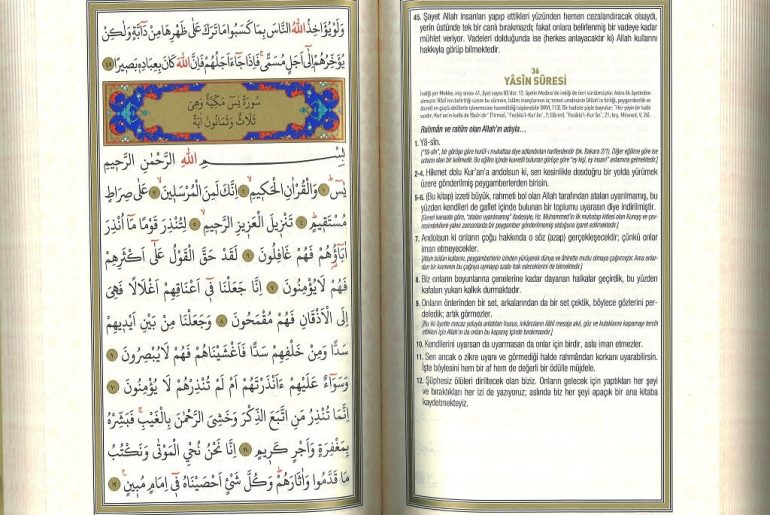 وَلَوْ يُؤَاخِذُ اللهُ النَّاسَ بِمَا كَسَبُوا مَا تَرَكَ عَلٰى ظَهْرِهَا مِنْ دَابَّةٍ وَلٰكِنْ
يُؤَخِّرُهُمْ اِلٰٓى اَجَلٍ مُسَمًّىۚ فَاِذَا جَٓاءَ اَجَلُهُمْ فَاِنَّ اللهَ كَانَ بِعِبَادِهٖ بَصِيرًا ﴿٤٥﴾
سُورَةُ يٰسٓ مَكِّيَّةٌ وَهِيَ
ثَلَاثٌ وَثَمَانُونَ اٰيَةً
بِسْمِ اللهِ الرَّحْمٰنِ الرَّحِيمِ
يٰسٓۚ ﴿١﴾ وَالْقُرْاٰنِ الْحَكِيمِۙ ﴿٢﴾ اِنَّكَ لَمِنَ الْمُرْسَلِينَۙ ﴿٣﴾ عَلٰى صِرَاطٍ
مُسْتَقِيمٍۜ ﴿٤﴾ تَنْزِيلَ الْعَزِيزِ الرَّحِيمِۙ ﴿٥﴾ لِتُنْذِرَ قَوْمًا مَٓا اُنْذِرَ
اٰبَٓاؤُهُمْ فَهُمْ غَافِلُونَ ﴿٦﴾ لَقَدْ حَقَّ الْقَوْلُ عَلٰٓى اَكْثَرِهِمْ
فَهُمْ لَا يُؤْمِنُونَ ﴿٧﴾ اِنَّا جَعَلْنَا فٖٓي اَعْنَاقِهِمْ اَغْلَالًا فَهِيَ
اِلَى الْاَذْقَانِ فَهُمْ مُقْمَحُونَ ﴿٨﴾ وَجَعَلْنَا مِنْ بَيْنِ اَيْدِيهِمْ
سَدًّا وَمِنْ خَلْفِهِمْ سَدًّا فَاَغْشَيْنَاهُمْ فَهُمْ لَا يُبْصِرُونَ ﴿٩﴾
وَسَوَٓاءٌ عَلَيْهِمْ ءَاَنْذَرْتَهُمْ اَمْ لَمْ تُنْذِرْهُمْ لَا يُؤْمِنُونَ ﴿١٠﴾
اِنَّمَا تُنْذِرُ مَنِ اتَّبَعَ الذِّكْرَ وَخَشِيَ الرَّحْمٰنَ بِالْغَيْبِۚ فَبَشِّرْهُ
بِمَغْفِرَةٍ وَاَجْرٍ كَرِيمٍ ﴿١١﴾ اِنَّا نَحْنُ نُحْيِ الْمَوْتٰى وَنَكْتُبُ
مَا قَدَّمُوا وَاٰثَارَهُمْۜ وَكُلَّ شَيْءٍ اَحْصَيْنَاهُ فٖٓي اِمَامٍ مُبِينٍ ﴿١٢﴾
45. Şayet Allah insanları yapıp ettikleri yüzünden hemen cezalandıracak olsaydı,
yerin üstünde tek bir canlı bırakmazdı; fakat onlara belirlenmiş bir vadeye kadar
mühlet veriyor. Vadeleri dolduğunda ise (herkes anlayacaktır ki) Allah kullarını
hakkıyla görüp bilmektedir.
36
YÂSÎN SÛRESİ
Rahmân ve rahîm olan Allah'ın adıyla...
1. Yâ-sîn.
2-4. Hikmet dolu Kur'an'a andolsun ki, sen kesinlikle dosdoğru bir yolda yürümek
üzere gönderilmiş peygamberlerden birisin.
5-6. (Bu kitap) izzeti büyük, rahmeti bol olan Allah tarafından ataları uyarılmamış, bu
yüzden kendileri de gaflet içinde bulunan bir toplumu uyarasın diye indirilmiştir.
7. Andolsun ki onların çoğu hakkında o söz (azap) gerçekleşecektir; çünkü onlar
iman etmeyecekler.
8. Biz onların boyunlarına çenelerine kadar dayanan halkalar geçirdik, bu yüzden
kafaları yukarı kalkık durmaktadır.
9. Onların önlerinden bir set, arkalarından da bir set çektik, böylece gözlerini per-
deledik; artık görmezler.
10. Kendilerini uyarsan da uyarmasan da onlar için birdir, asla iman etmezler.
11. Sen ancak o zikre uyanı ve görmediği halde rahmândan korkanı uyarabilirsin.
İşte böylesini hem bir af hem de değerli bir ödülle müjdele.
12. Şüphesiz ölüleri diriltecek olan biziz. Onların gelecek için yaptıkları her şeyi
ve bıraktıkları her izi de yazıyoruz; aslında biz her şeyi apaçık bir ana kitaba
kaydetmekteyiz.